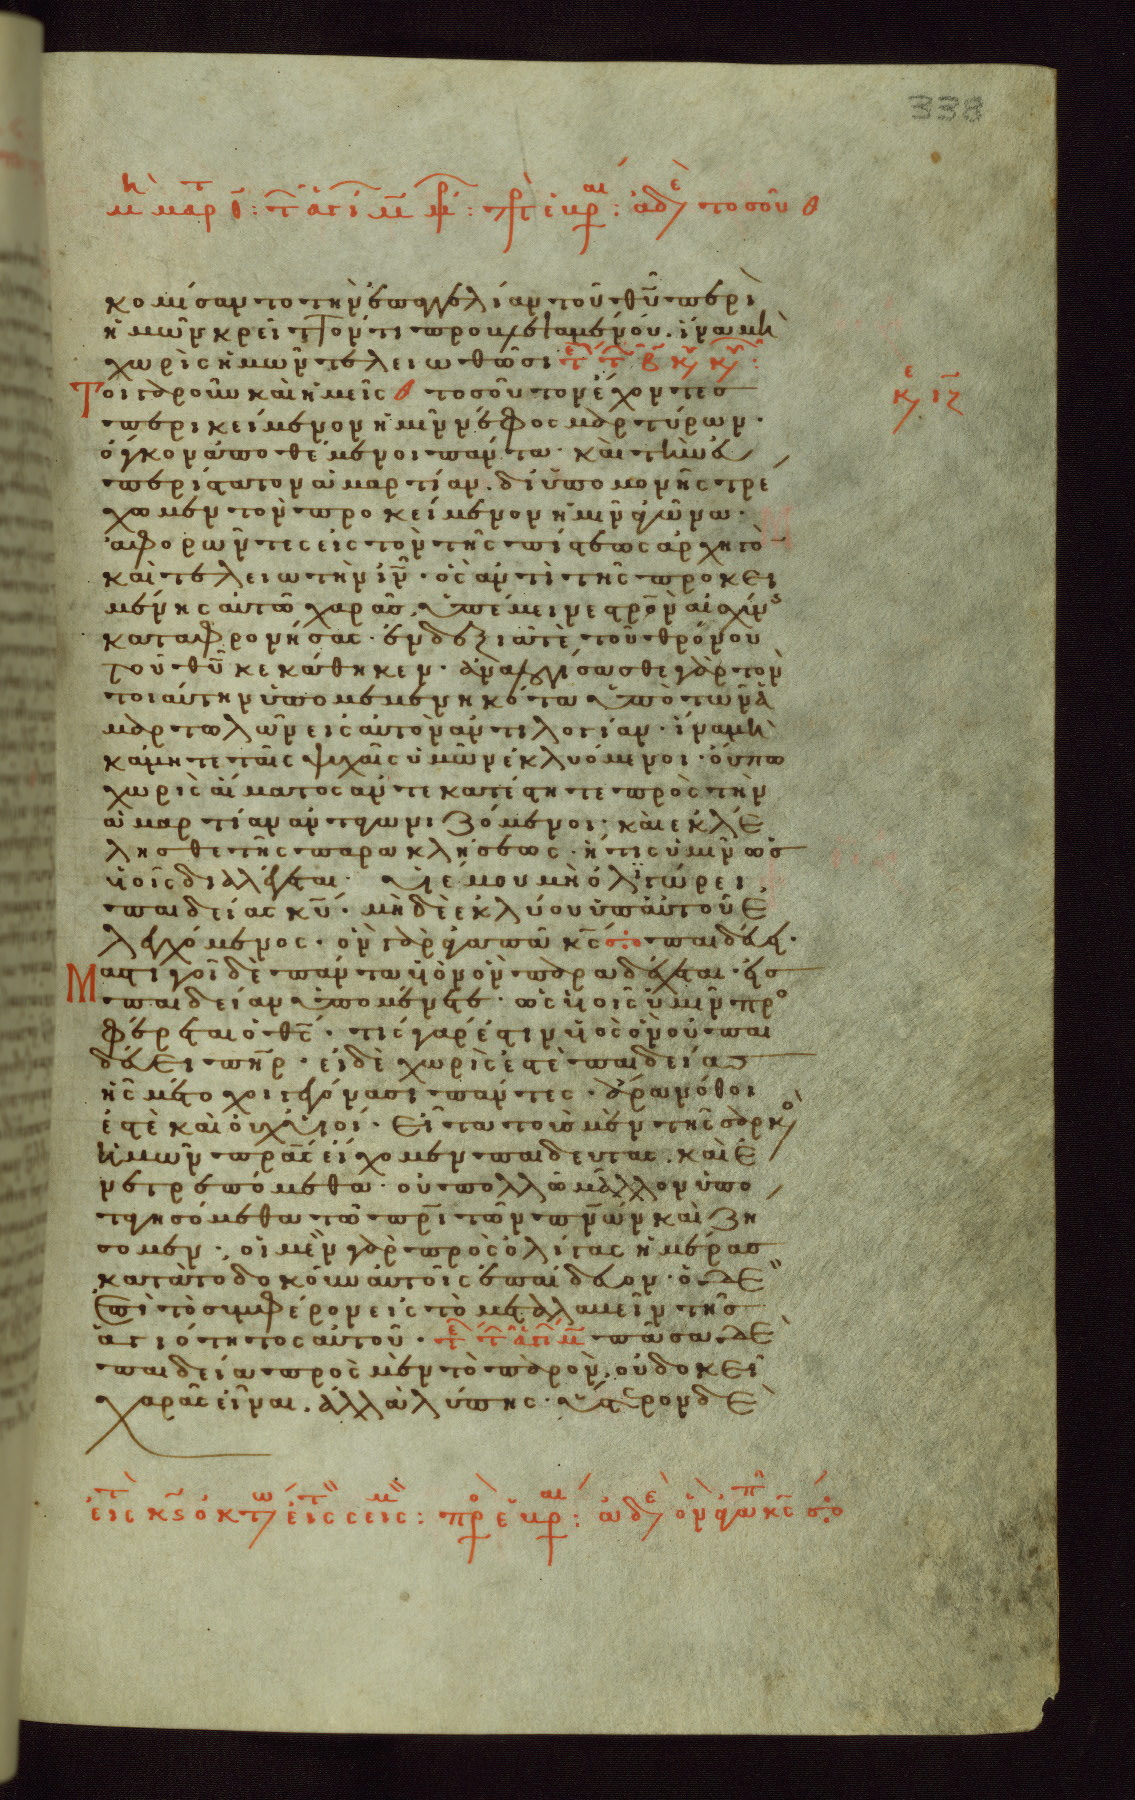 338
κομίσαντο τὴν ἐπαγγελίαν τοῦ θ̅υ̅ περὶ
ἡμῶν κρεῖττόν τι προβλεψαμένου. ἵνα μὴ
χωρὶς ἡμῶν τελειωθῶσι
Τοιγαροῦν καὶ ἡμεῖς τοσοῦτον ἔχοντες
περικείμενον ἡμῖν νέφος μαρτύρων.
ὄγκον ἀποθέμενοι πάντα. καὶ τὴν εὐ
περίστατον ἁμαρτίαν. δι' ὑπομονῆς τρέ
χωμεν τὸν προκείμενον ἡμῖν ἀγῶνα.
ἀφορῶντες εἰς τὸν τῆς πίστεως ἀρχηγὸ
καὶ τελειωτὴν ι̅ν̅. ὃς ἀντὶ τῆς προκει
μένης αὐτῶ χαρᾶς. ὑπέμεινε σ̅ρ̅ο̅ν̅ αἰσχύν
καταφρονήσας. ἐν δεξιᾶ τὲ τοῦ θρόνου
τοῦ θ̅υ̅ κεκάθηκεν. ἀναλογίσασθε γὰρ τὸν
τοιαύτην ὑπομεμενηκότα ὑπὸ τῶν ἁ
μαρτωλῶν εἰς αὐτὸν ἀντιλογίαν. ἵνα μὴ
κάμητε ταῖς ψυχαῖς ὑμῶν ἐκλυόμενοι. οὔπω
χωρὶς αἵματος ἀντεκατέστητε πρὸς τὴν
ἁμαρτίαν ἀνταγωνιζόμενοι. καὶ ἐκλέ
λησθε τῆς παρακλήσεως. ἥτις ὑμῖν ὡς
υἱοῖς διαλέγεται. υἱέ μου μὴ ὀλιγώρει
παιδείας κ̅υ̅. μὴ δὲ ἐκλύου ὑπ' αὐτοῦ ἐ
λεγχόμενος. ὃν γὰρ ἀγαπᾶ κ̅ς̅ παιδεύει.
Μαστιγοῖ δὲ πάντα υἱὸν ὃν παραδέχεται. εἰς
παιδείαν ὑπομένετε. ὡς υἱοῖς ὑμῖν προσ
φέρεται ὁ θ̅ς̅. τίς γάρ ἐστιν υἱὸς ὃν οὐ παι
δεύει π̅η̅ρ̅. εἰ δὲ χωρίς ἐστε παιδείας
ἧς μέτοχοι γεγόνασι πάντες. ἄρα νόθοι
ἐστὲ καὶ οὐχ υἱοί. εἶτα τοὺς μὲν τῆς σαρκὸ
ἡμῶν π̅ρ̅α̅ς̅ εἴχομεν παιδευτὰς. καὶ ἐ
νετρεπόμεθα. οὐ πολλῶ μᾶλλον ὑπο
ταγησόμεθα τῶ π̅ρ̅ι̅ τῶν π̅ν̅ά̅ω̅ν̅ καὶ ζή
σομεν. οἱ μὲν γὰρ πρὸς ὀλίγας ἡμέρας
κατὰ τὸ δοκοῦν αὐτοῖς ἐπαίδευον. ὁ δὲ
ἐπὶ τὸ συμφέρον εἰς τὸ μεταλαβεῖν τῆς
ἁγιότητος αὐτοῦ. πᾶσα δὲ
παιδεία πρὸς μὲν τὸ παρὸν. οὐ δοκεῖ
χαρᾶς εἶναι. ἀλλὰ λύπης. ὕστερον δὲ